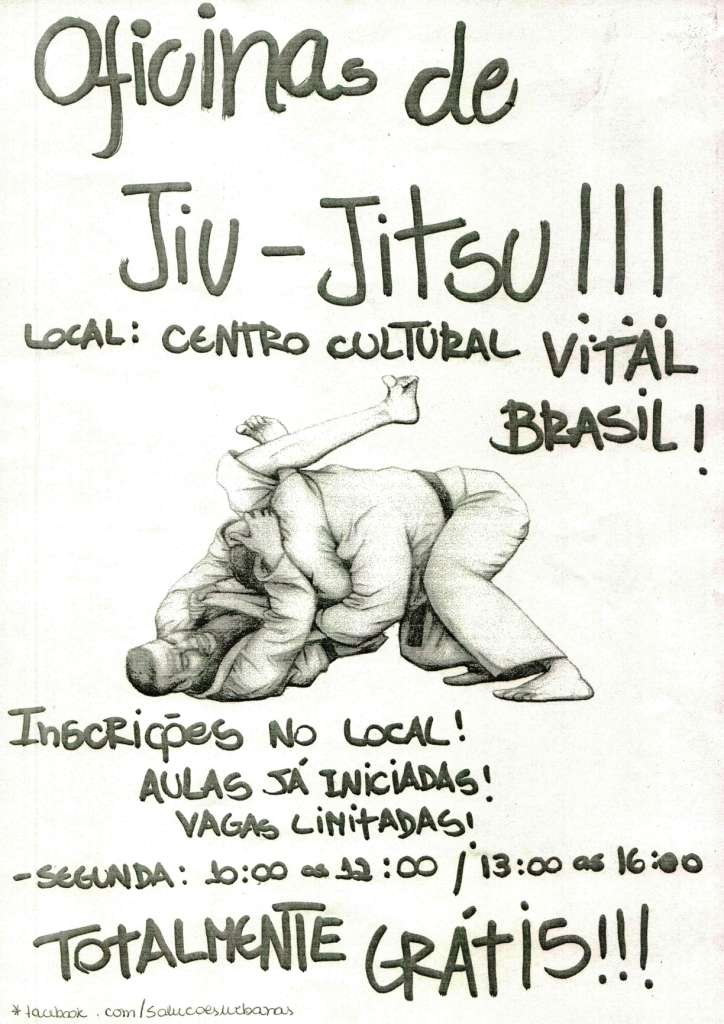 Oficinas de
Jiu-Jitsu!!!
LOCAL: CENTRO CULTURAL VITAL
BRASIL!
INSCRIÇÕES NO LOCAL!
AULAS JÁ INICIADAS!
VAGAS LIMITADAS!
-SEGUNDA: 10:00 as 12:00 / 13:00 as 16:00
TOTALMENTE GRÁTIS!!!
*facebook.com/solucoesurbanas